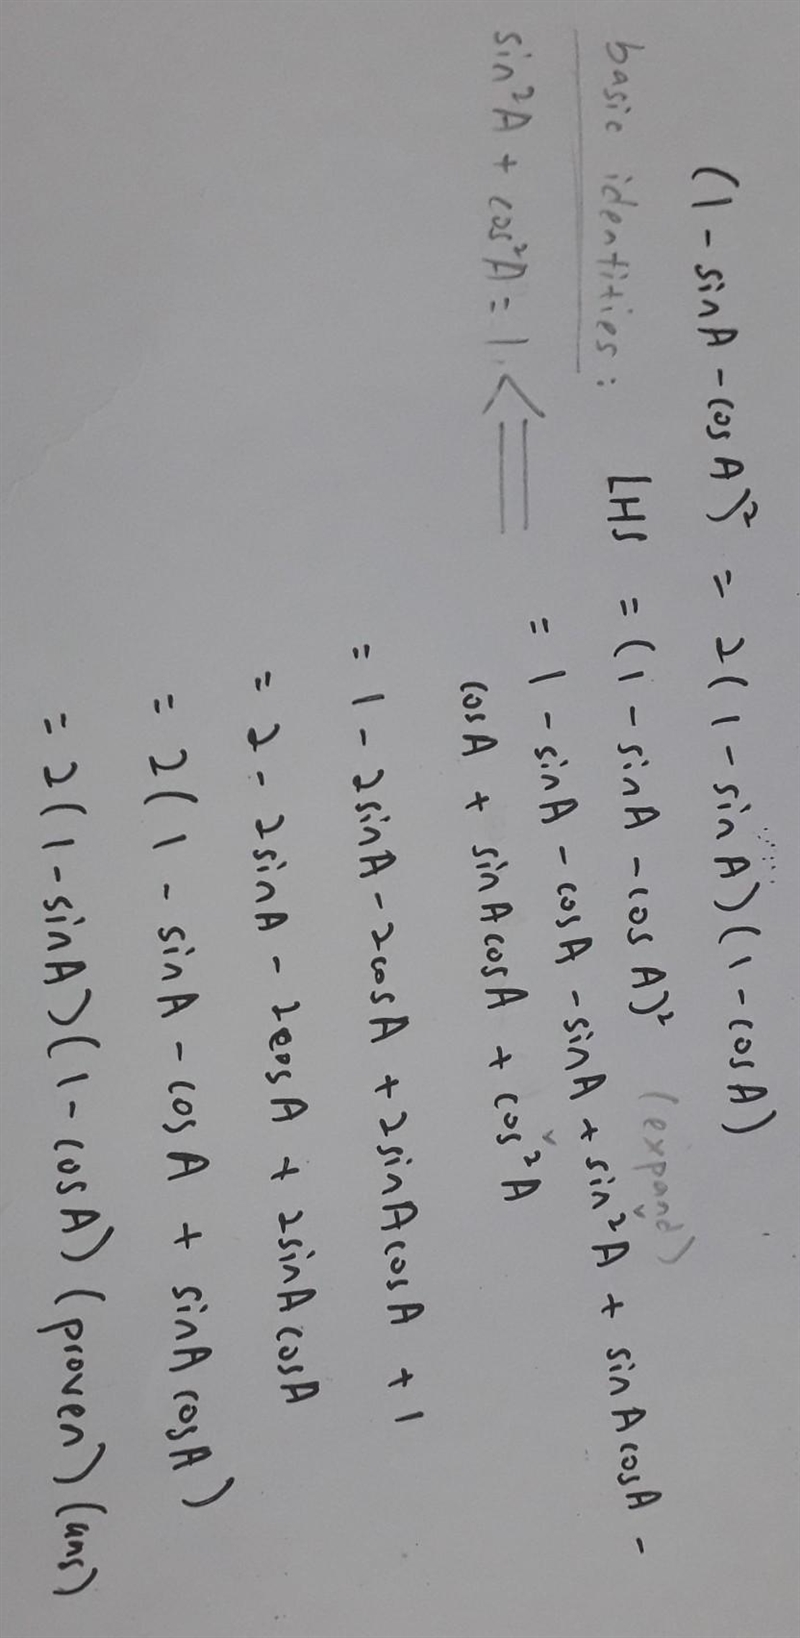 (1 - sinA - cosA)² = 2(1 - sinA)(1 - cosA)
basic identities:
sin²A + cos²A = 1.
LHS = (1 - sinA - cosA)² (expand)
= 1 - sinA - cosA - sinA + sin²A + sinAcosA -
cosA + sinAcosA + cos²A
= 1 - 2sinA - 2cosA + 2sinAcosA + 1
= 2 - 2sinA - 2cosA + 2sinAcosA
= 2(1 - sinA - cosA + sinAcosA)
= 2(1 - sinA)(1 - cosA) (proven) (ans)